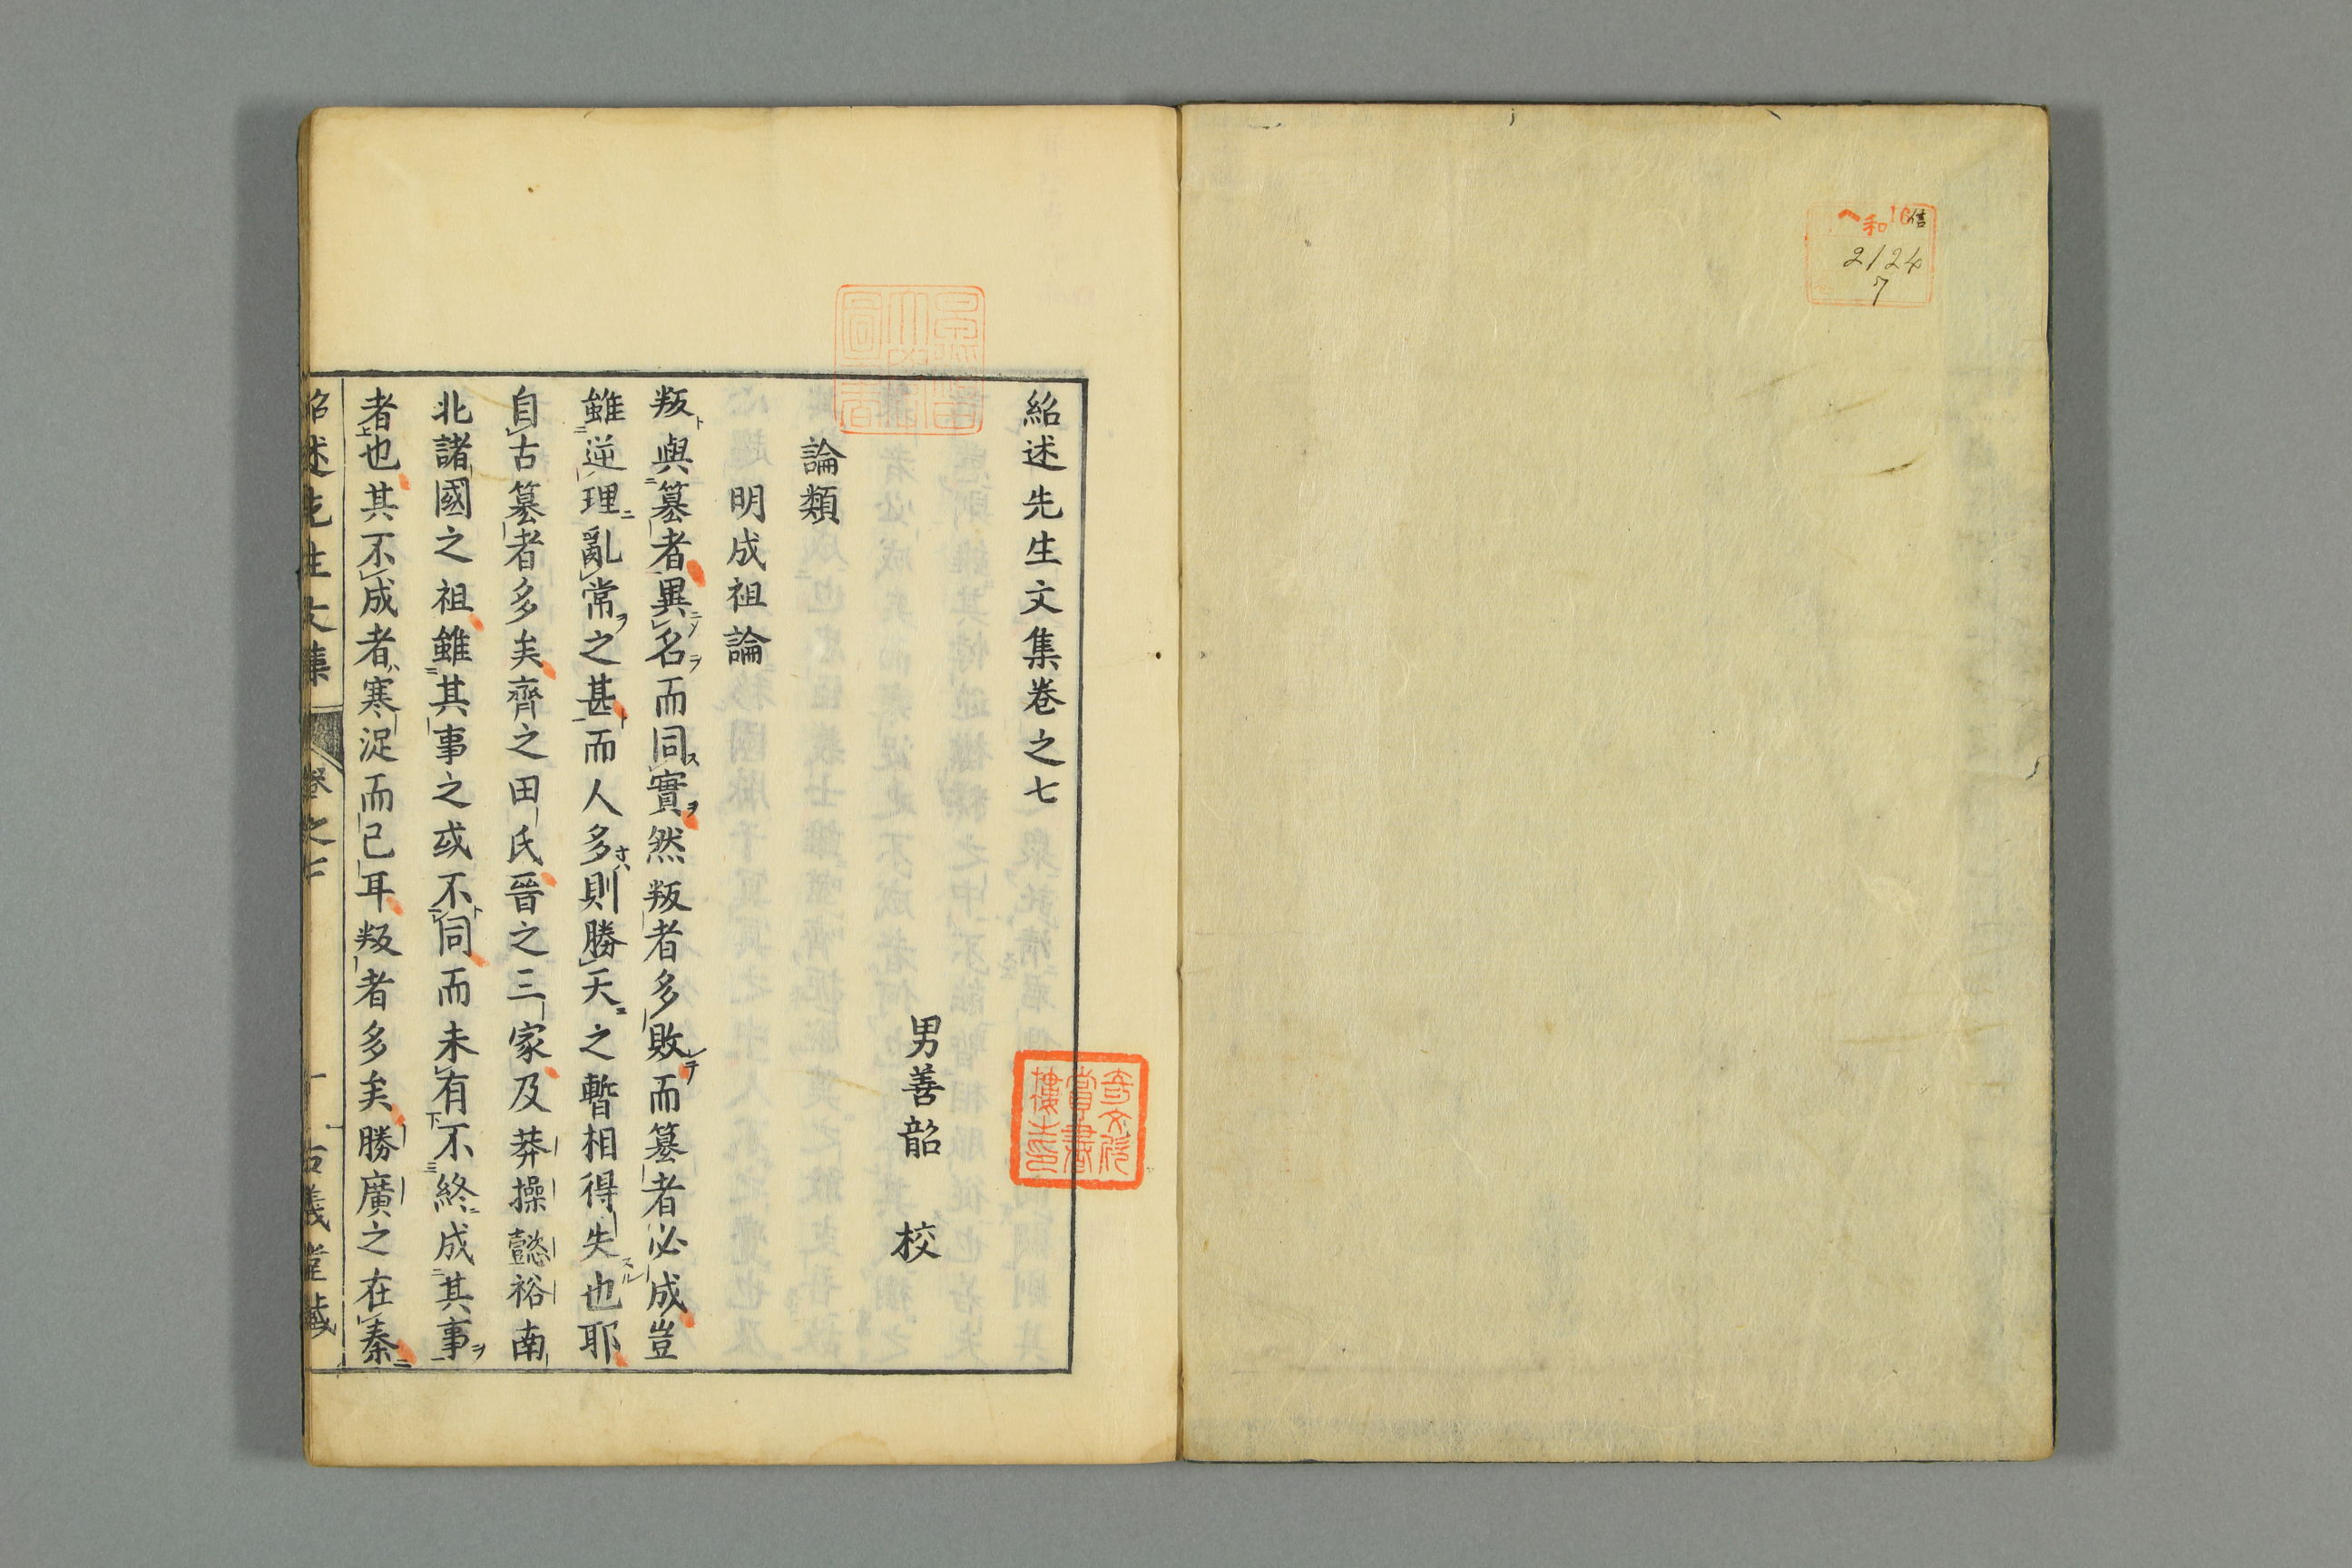 ヘ和16
信
2124
7
紹述先生文集卷之七
男善韶　校
論類
明成祖論
叛與簒者異名而同實然叛者多敗而簒者必成豈
雖逆理亂常之甚而人多則勝天之暫相得失也耶
自古簒者多矣齊之田氏晉之三家及莽操懿裕南
北諸國之祖雖其事之或不同而未有不終成其事
者也其不成者寒浞而已耳叛者多矣勝廣之在秦
紹述先生文集
卷之七
一
古義堂藏
奇文欣賞書樓之印